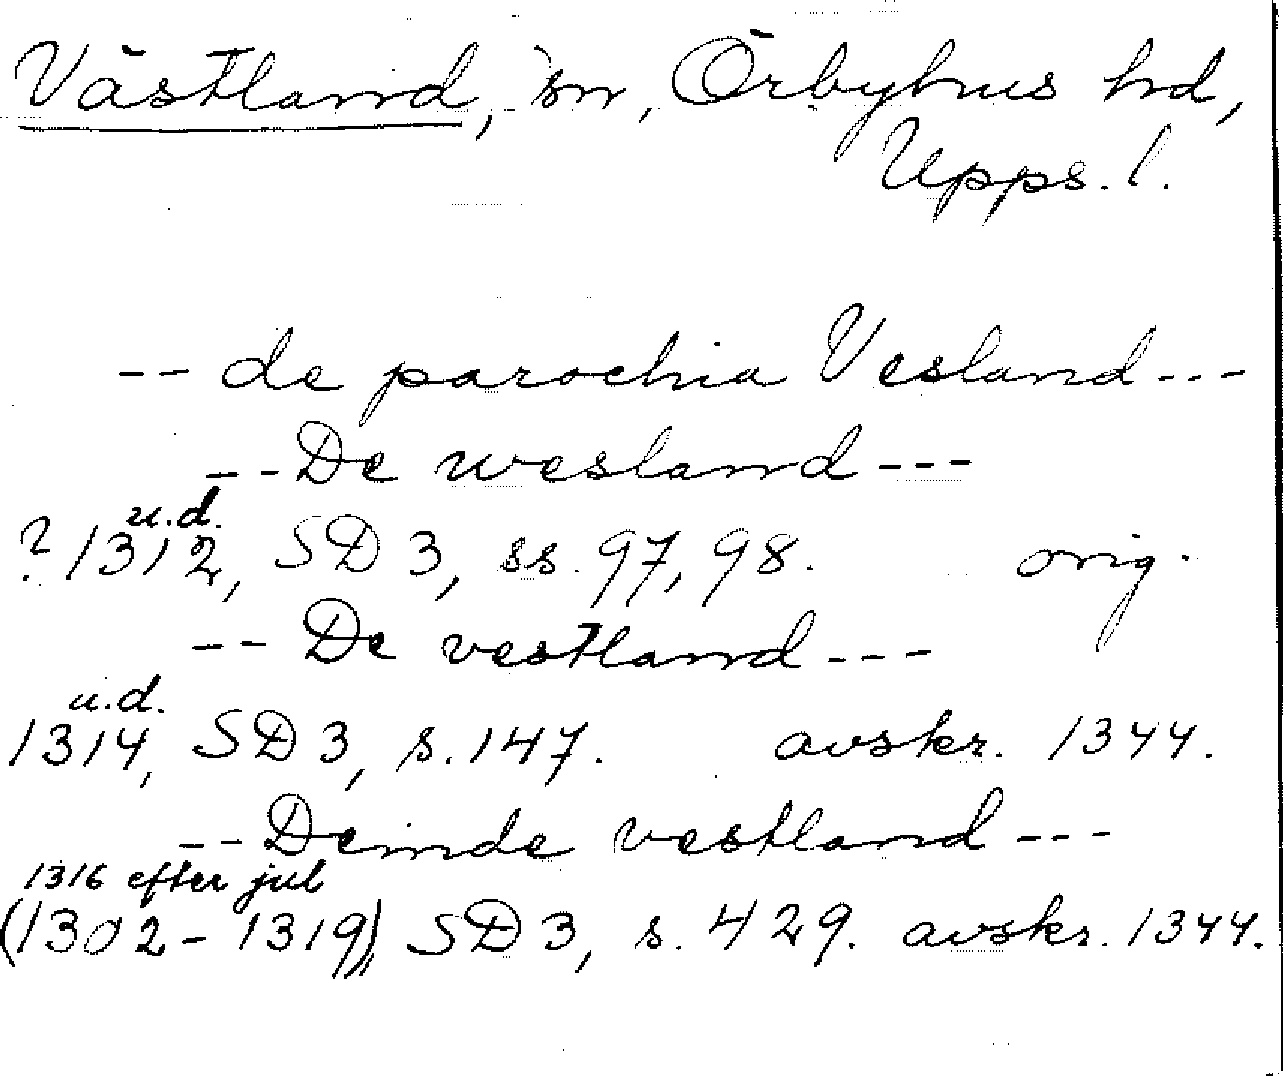 Västland, sn, Örbyhus hd,
Upps. l.
-- de parochia Vesland---
-- De wesland ---
u.d.
? 1312, SD 3, ss. 97, 98. orig.
-- De vestland ---
u.d.
1314, SD 3, s. 147. avskr. 1344.
-- Deinde vestland ---
1316 efter jul
(1302 - 1319), SD 3, s. 429. avskr. 1344.